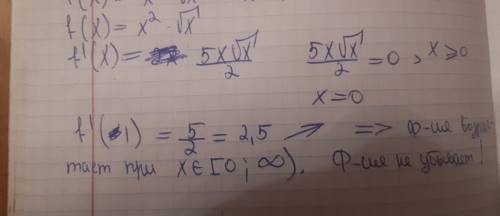 f(x) = x² · √x
f'(x) = 5x√x/2    5x√x/2 = 0, x ≥ 0
x = 0
f'(1) = 5/2 = 2,5 ↗ => Ф-ия возрас-
тает при x ∈ [0; ∞). Ф-ия не убывает!